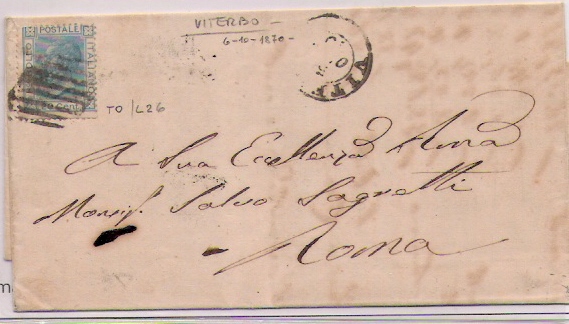 VITERBO -
6-10-1870-
POSTALE
20 Cent
VIT
TO/L26
A Sua Eccellenza Rma
Monsig. Salvo Sagretti
Roma